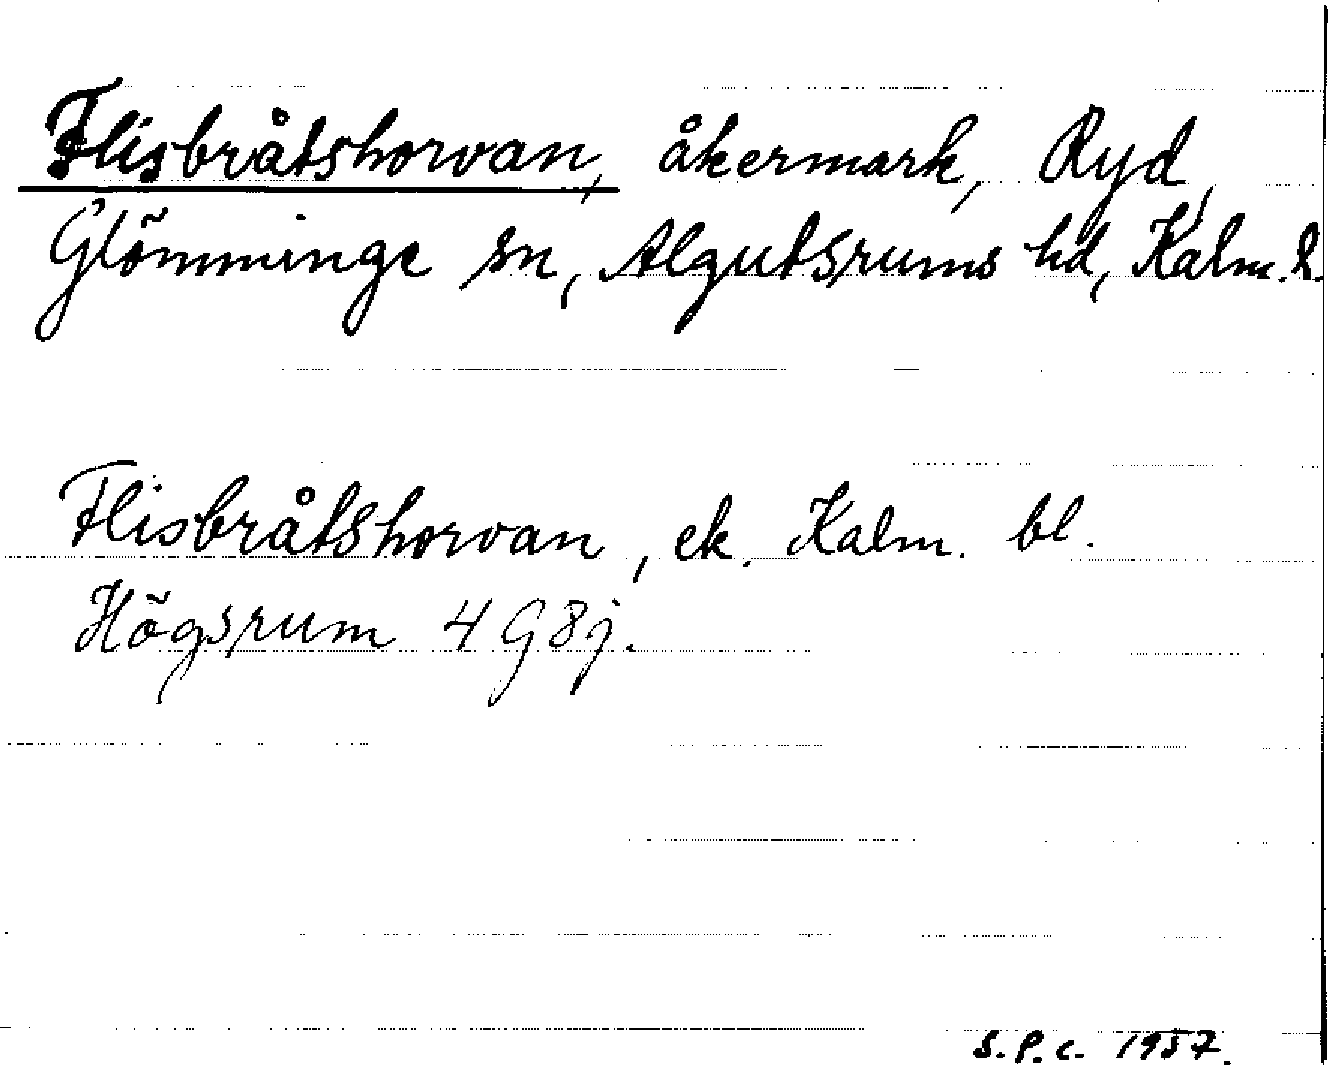 Flisbråtshorvan, åkermark, Ryd,
Glömminge sn, Algutsrums hd, Kalm. l.
Flisbråtshorvan, ek. Kalm. bl.
Högsrum 4 G 8 j.
S.P.C. 1957.